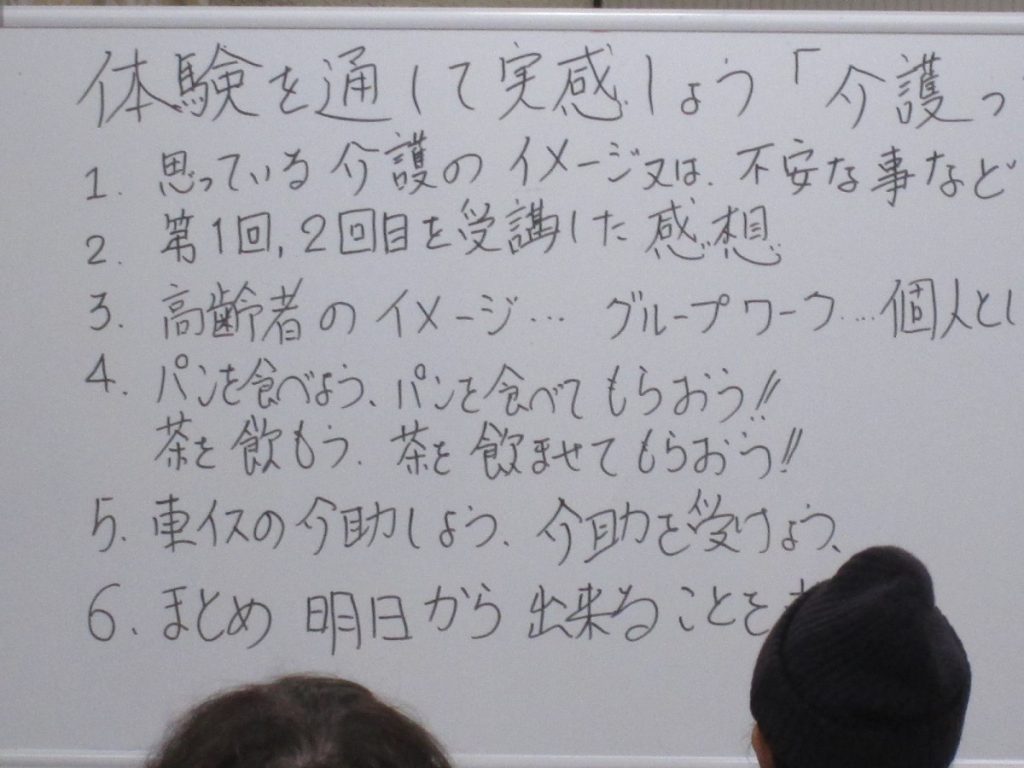 体験を通して実感しょう「介護っ
1. 思っている介護のイメージ又は、不安な事など
2. 第1回,2回目を受講した感想
3. 高齢者のイメージ… グループワーク…個人とし
4. パンを食べよう、パンを食べてもらおう!!
茶を飲もう、茶を飲ませてもらおう!!
5. 車イスの介助しよう、介助を受けよう、
6. まとめ 明日から出来ることを